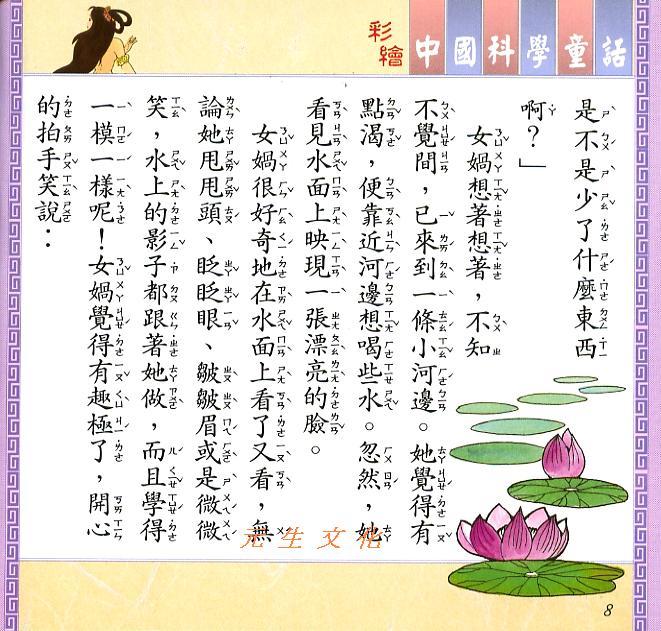 彩繪
中國科學童話
是不是少了什麼東西
啊？」
女媧想著想著，不知
不覺間，已來到一條小河邊。她覺得有
點渴，便靠近河邊想喝些水。忽然，她
看見水面上映現一張漂亮的臉。
女媧很好奇地在水面上看了又看，無
論她甩甩頭、眨眨眼、皺皺眉或是微微
笑，水上的影子都跟著她做，而且學得
一模一樣呢！女媧覺得有趣極了，開心
的拍手笑說：
元生文化
8